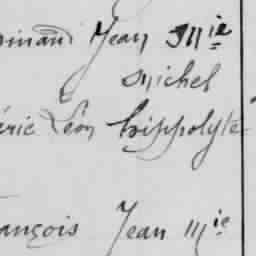 minand Jean Mie
Michel
éric Léon hippolyte
ançois Jean Mie